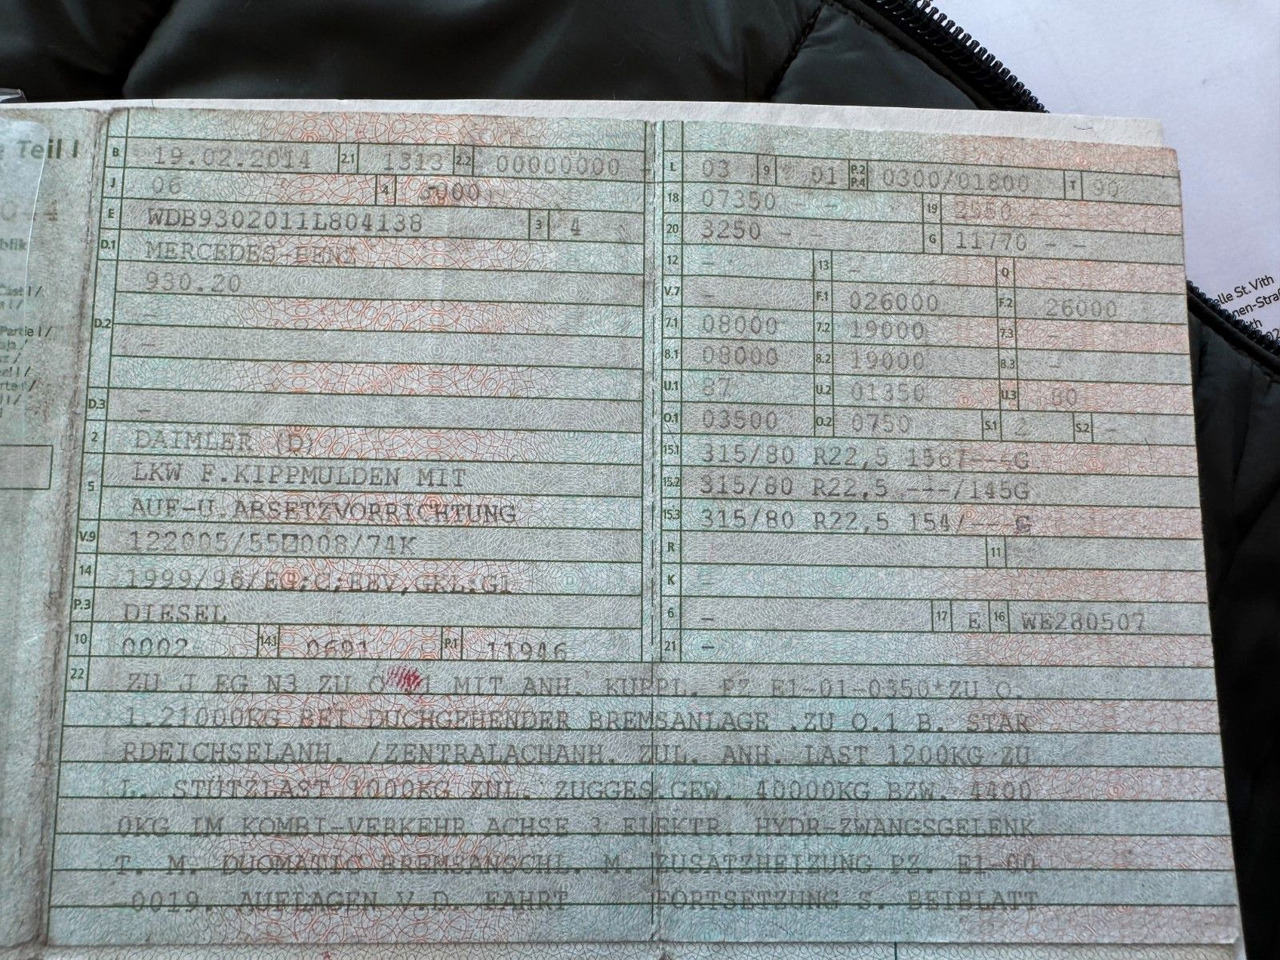 e Teil I
B 19.02.2014 2.1 1313 2.2 00000000 -
J 06 4
E WDB9302011L804138 3 4
D.1 MERCEDES-BENZ
930.20
D.2 -
-
D.3 -
2 DAIMLER (D)
5 LKW F.KIPPMULDEN MIT
AUF-U.ABSETZVORRICHTUNG
V.9 122005/55 008/74K
14 1999/96/EG;C;EEV,GKL:G1
P.3 DIESEL
10 0002 14.1 0691 P.1 11946
L 03 9 01 P.2 P.4 0300/01800 T 90
18 07350 - - 19 2550 - -
20 3250 - - G 11770 - -
12 - 13 - Q -
V.7 - F.1 026000 F.2 26000
7.1 08000 7.2 19000 7.3 -
8.1 08000 8.2 19000 8.3 -
U.1 87 U.2 01350 U.3 80
O.1 03500 O.2 0750 S.1 2 S.2 -
15.1 315/80 R22,5 156/---G
15.2 315/80 R22,5 ---/145G
15.3 315/80 R22,5 154/---G
R 11
K -
6 - 17 E 16 WE280507
21 -
22 ZU J EG N3 ZU MIT ANH. KUPPL. PZ E1-01-0350*ZU O.
1.21000KG BEI DUCHGEHENDER BREMSANLAGE .ZU O.1 B. STAR
RDEICHSELANH. /ZENTRALACHANH. ZUL. ANH. LAST 1200KG ZU
L. STÜTZLAST 1000KG ZUL. ZUGGES.GEW. 40000KG BZW. 4400
0KG IM KOMBI-VERKEHR ACHSE 3 ELEKTR. HYDR-ZWANGSGELENK
T. M. DUOMATIC BREMSANSCHL. M. ZUSATZHEIZUNG PZ. E1-00
-0019. AUFLAGEN V.D. FAHRT FORTSETZUNG S. BEIBLATT
elle St. Vith
nen-Straß